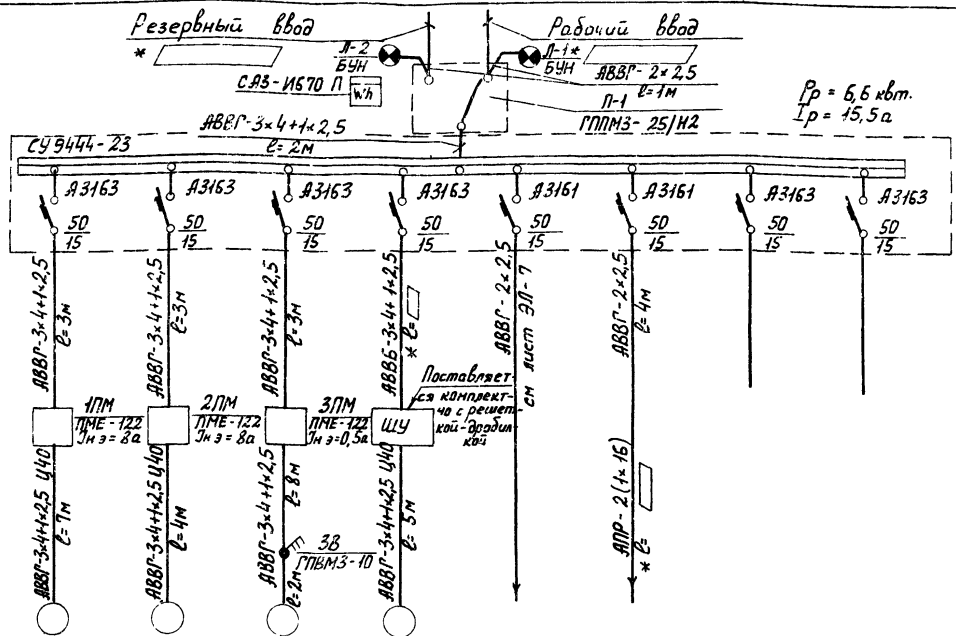 Резервный ввод
*
Л-2
БУН
САЗ-И670 П
Wh
Рабочий ввод
Л-1*
БУН
АВВГ-2×2,5
ℓ=1м
П-1
ГППМЗ-25/Н2
Рр = 6,6 квт.
Iр = 15,5а
АВВГ-3×4+1×2,5
ℓ=2м
СУ9444-23
А3163
50
15
А3163
50
15
А3163
50
15
А3163
50
15
А3161
50
15
А3161
50
15
А3163
50
15
А3163
50
15
АВВГ-3×4+1×2,5
ℓ=3м
АВВГ-3×4+1×2,5
ℓ=3м
АВВГ-3×4+1×2,5
ℓ=3м
АВВБ-3×4+1×2,5
* ℓ=
АВВГ-2×2,5
см лист ЭЛ-7
АВВГ-2×2,5
ℓ=4м
1ПМ
ПМЕ-122
Iн э = 8а
2ПМ
ПМЕ-122
Iн э = 8а
3ПМ
ПМЕ-122
Iн э=0,5а
ШУ
Поставляет-
ся комплект-
но с решет-
кой-дробил-
кой
АВВГ-3×4+1×2,5 Ц40
ℓ=7м
АВВГ-3×4+1×2,5 Ц40
ℓ=4м
АВВГ-3×4+1×2,5
ℓ=8м
3В
ГПВМЗ-10
ℓ=2м
АВВГ-3×4+1×2,5 Ц40
ℓ=5м
АПР-2(1×16)
* ℓ=